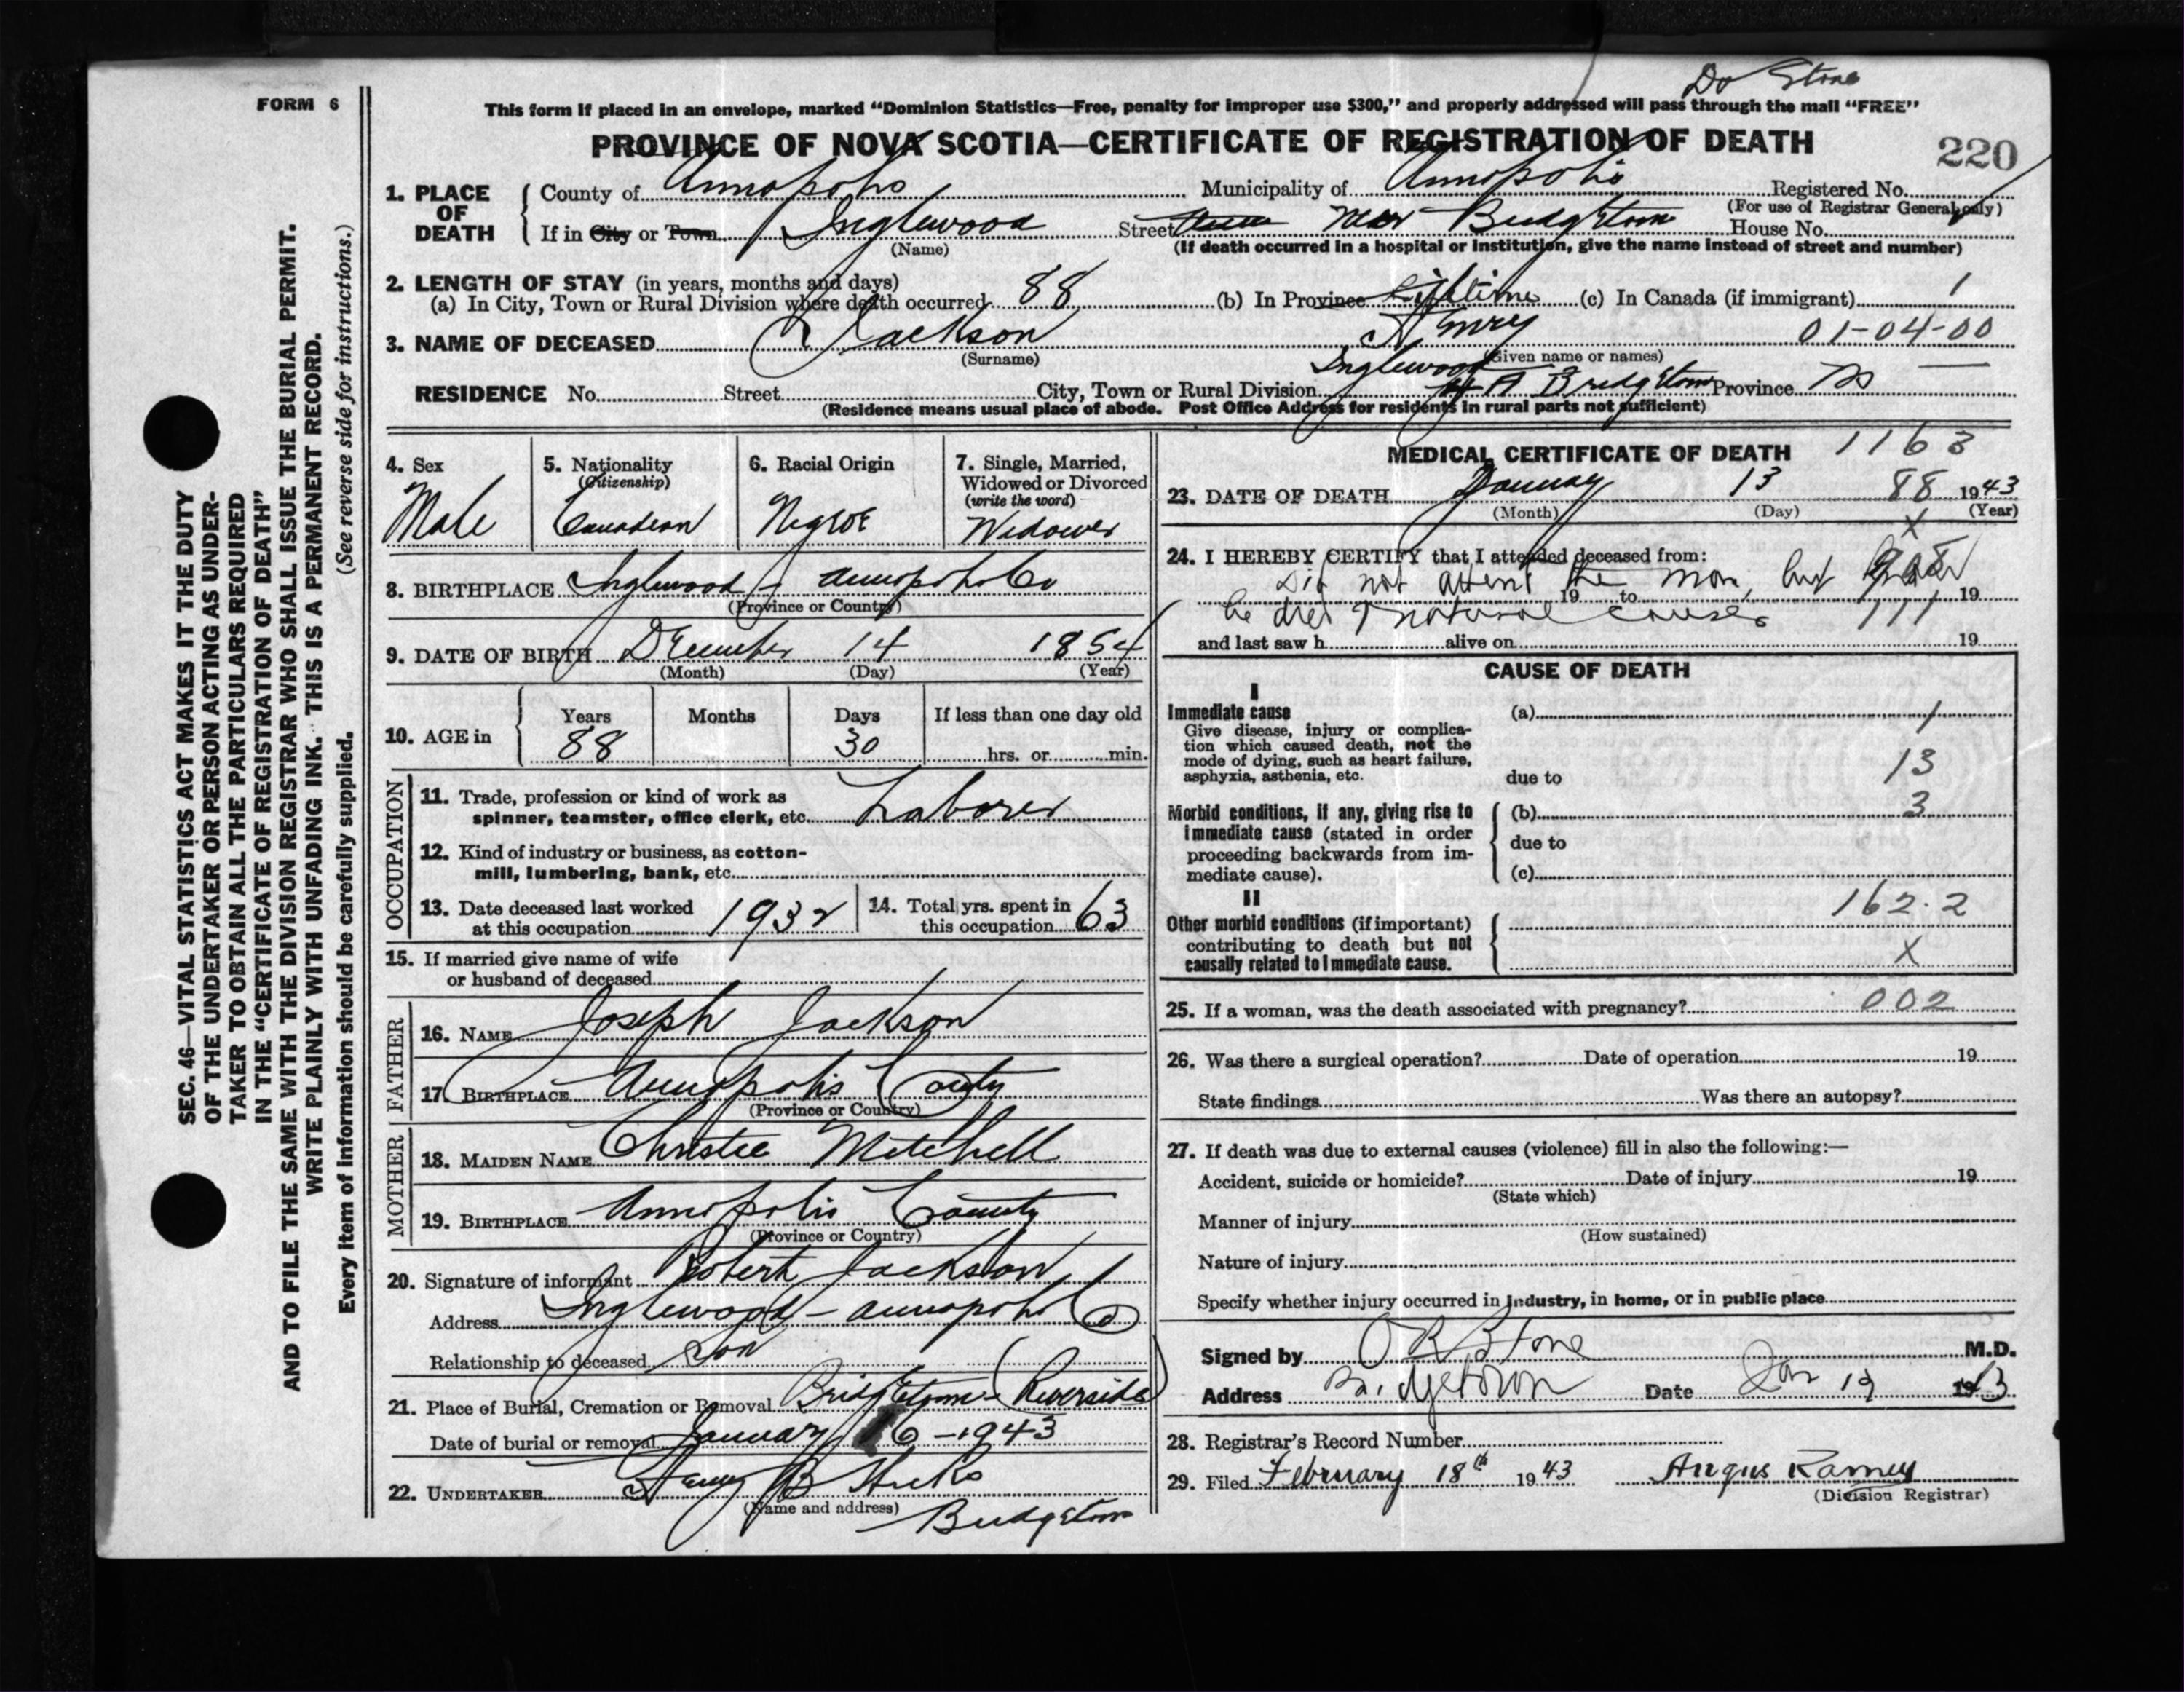 Dr Stone
FORM 6
This form if placed in an envelope, marked “Dominion Statistics—Free, penalty for improper use $300,” and properly addressed will pass through the mail “FREE”
PROVINCE OF NOVA SCOTIA—CERTIFICATE OF REGISTRATION OF DEATH
220
1. PLACE OF DEATH { County of Annapolis Municipality of Annapolis Registered No.
(For use of Registrar General only)
If in City or Town Inglewood Street near Bridgetown House No.
(Name) (If death occurred in a hospital or institution, give the name instead of street and number)
2. LENGTH OF STAY (in years, months and days)
(a) In City, Town or Rural Division where death occurred 88 (b) In Province Lifetime (c) In Canada (if immigrant) 1
3. NAME OF DECEASED Jackson Henry 01-04-00
(Surname) (Given name or names)
Inglewood
RESIDENCE No. Street City, Town or Rural Division Bridgetown Province NS
(Residence means usual place of abode. Post Office Address for residents in rural parts not sufficient)
4. Sex
Male
5. Nationality
(Citizenship)
Canadian
6. Racial Origin
Negroe
7. Single, Married,
Widowed or Divorced
(write the word)
Widower
8. BIRTHPLACE Inglewood - Annapolis Co
(Province or Country)
9. DATE OF BIRTH December 14 1854
(Month) (Day) (Year)
10. AGE in { Years Months Days If less than one day old
88 30 hrs. or min.
OCCUPATION
11. Trade, profession or kind of work as
spinner, teamster, office clerk, etc. Laborer
12. Kind of industry or business, as cotton-
mill, lumbering, bank, etc.
13. Date deceased last worked
at this occupation 1932
14. Total yrs. spent in
this occupation 63
15. If married give name of wife
or husband of deceased
FATHER
16. NAME Joseph Jackson
17. BIRTHPLACE Annapolis County
(Province or Country)
MOTHER
18. MAIDEN NAME Christee Mitchell
19. BIRTHPLACE Annapolis County
(Province or Country)
20. Signature of informant Robert Jackson
Address Inglewood - Annapolis Co
Relationship to deceased Son
21. Place of Burial, Cremation or Removal Bridgetown (Riverside)
Date of burial or removal January 16 - 1943
22. UNDERTAKER Harry B Hicks
(Name and address) Bridgetown
MEDICAL CERTIFICATE OF DEATH 1163
23. DATE OF DEATH January 13 88 1943
(Month) (Day) (Year)
X
24. I HEREBY CERTIFY that I attended deceased from:
Did not attend the man, but
19 to 19
he died of natural causes 111
and last saw h alive on 19
CAUSE OF DEATH
I
Immediate cause (a) 1
Give disease, injury or complica-
tion which caused death, not the
mode of dying, such as heart failure,
asphyxia, asthenia, etc. due to 13
Morbid conditions, if any, giving rise to { (b) 3
immediate cause (stated in order due to
proceeding backwards from im-
mediate cause). (c)
II
162.2
Other morbid conditions (if important) {
contributing to death but not
causally related to immediate cause. X
25. If a woman, was the death associated with pregnancy? 002
26. Was there a surgical operation? Date of operation 19
State findings Was there an autopsy?
27. If death was due to external causes (violence) fill in also the following:—
Accident, suicide or homicide? Date of injury 19
(State which)
Manner of injury
(How sustained)
Nature of injury
Specify whether injury occurred in Industry, in home, or in public place
Signed by O R Stone M.D.
Address Bridgetown Date Jan 19 1943
28. Registrar's Record Number
29. Filed February 18th 1943 Angus Ramey
(Division Registrar)
SEC. 46—VITAL STATISTICS ACT MAKES IT THE DUTY
OF THE UNDERTAKER OR PERSON ACTING AS UNDER-
TAKER TO OBTAIN ALL THE PARTICULARS REQUIRED
IN THE “CERTIFICATE OF REGISTRATION OF DEATH”
AND TO FILE THE SAME WITH THE DIVISION REGISTRAR WHO SHALL ISSUE THE BURIAL PERMIT.
WRITE PLAINLY WITH UNFADING INK. THIS IS A PERMANENT RECORD.
Every item of information should be carefully supplied. (See reverse side for instructions.)